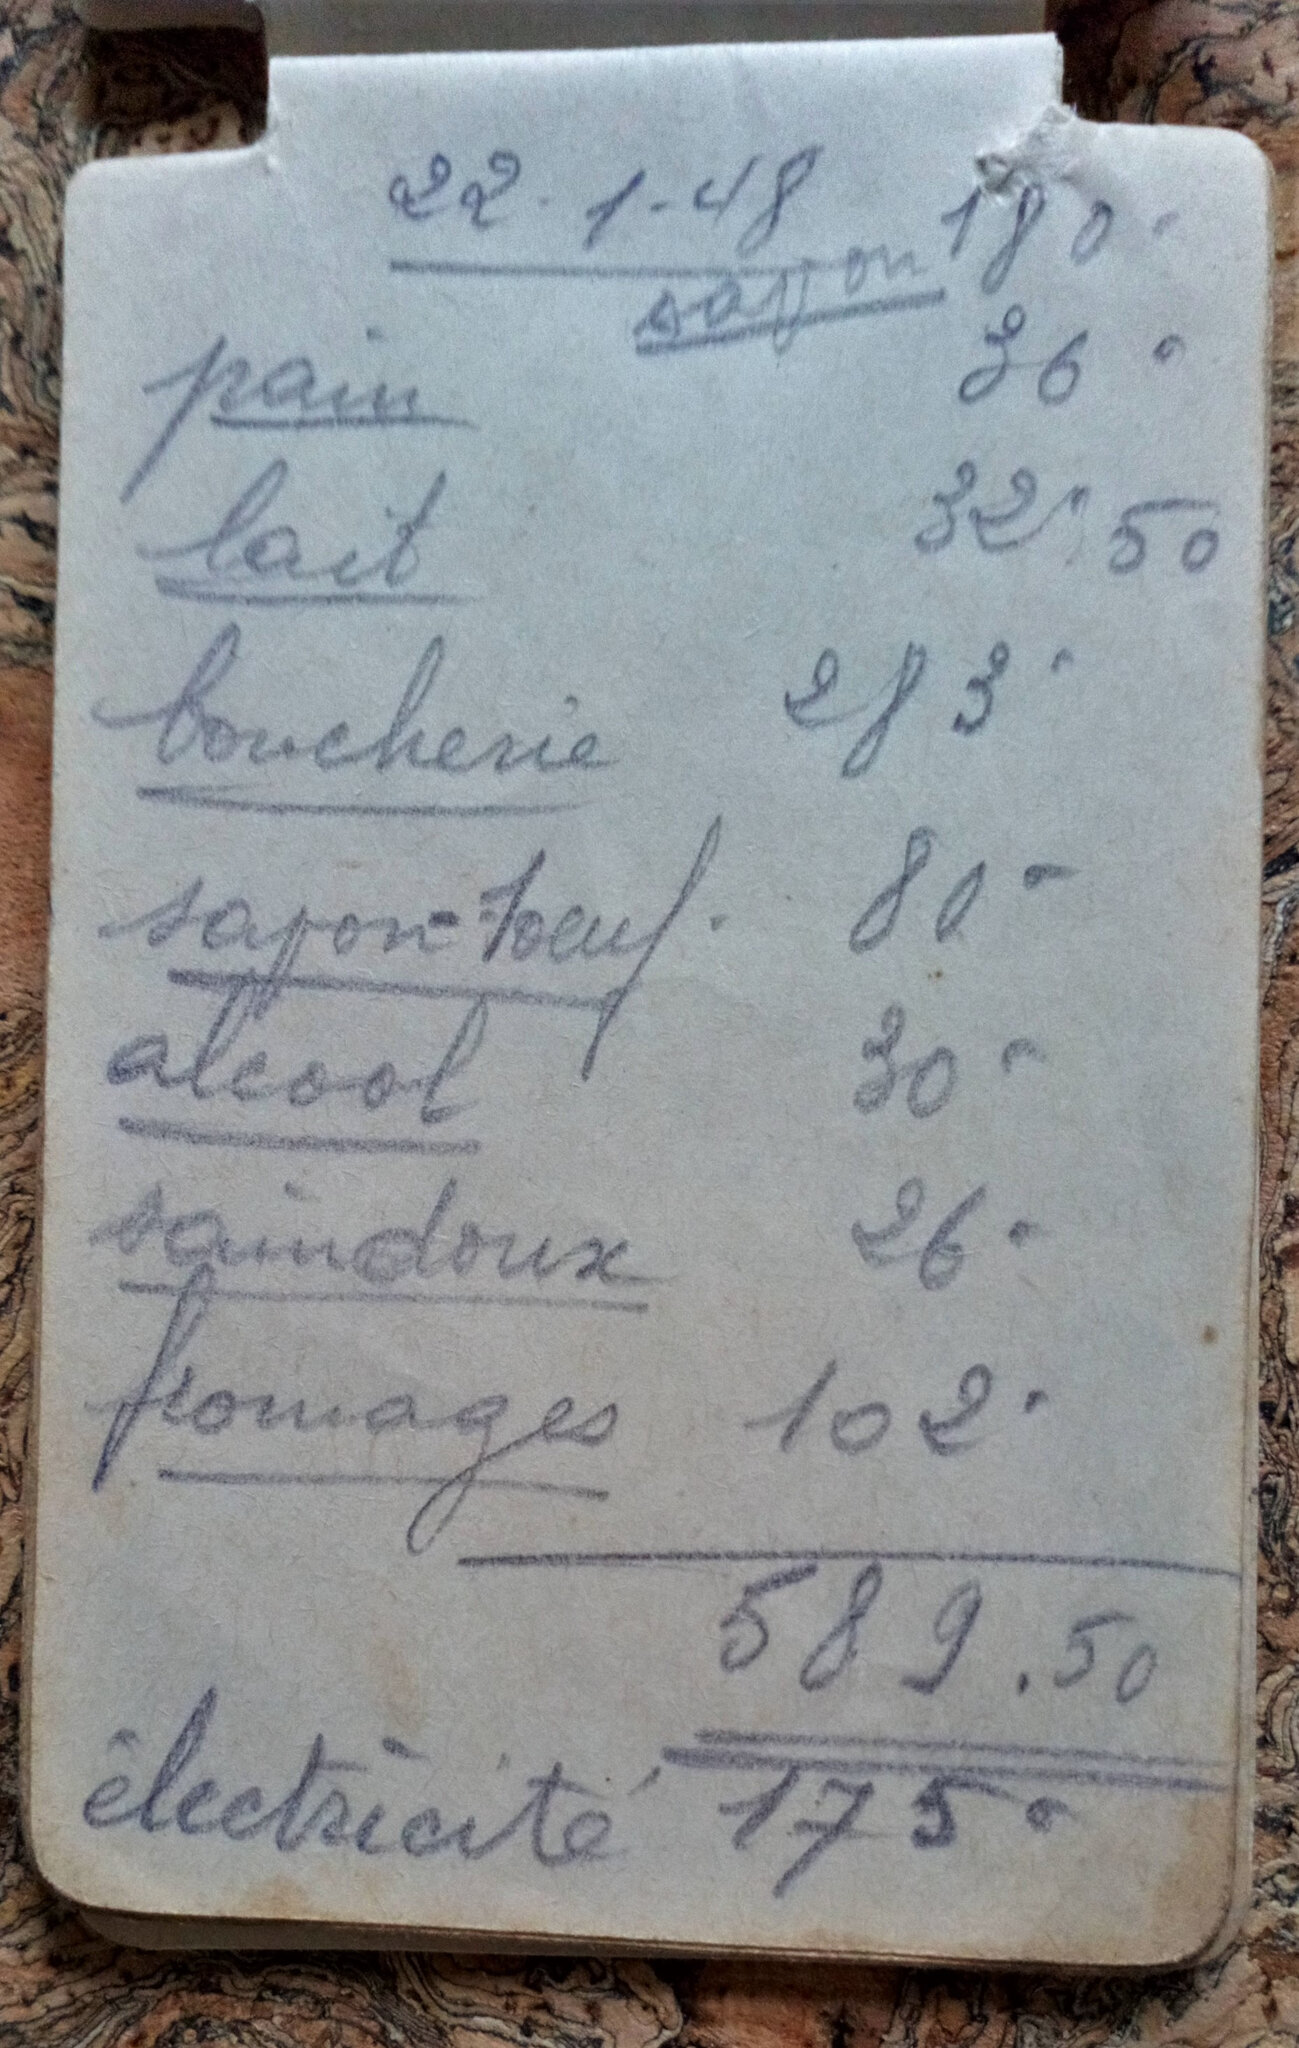 22-1-48
savon 180-
pain 36-
lait 32.50
boucherie 283-
savon-boeuf. 80-
alcool 30-
saindoux 26-
fromages 102-
589.50
électricité 175-